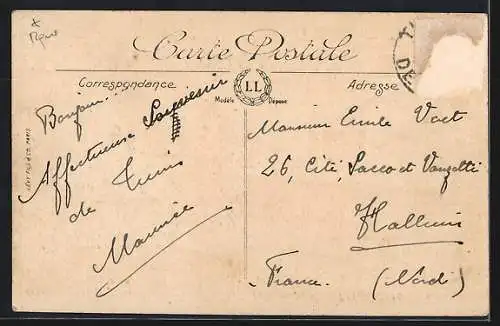 Carte Postale
Correspondance
LL
Modèle Déposé
Adresse
Bonjour.
Affectueuse Souvenir
de Tunis
Maurice
Monsieur Emile Voet
26, Cité, Sacco et Vanzetti
Halluin
France. (Nord)
DE